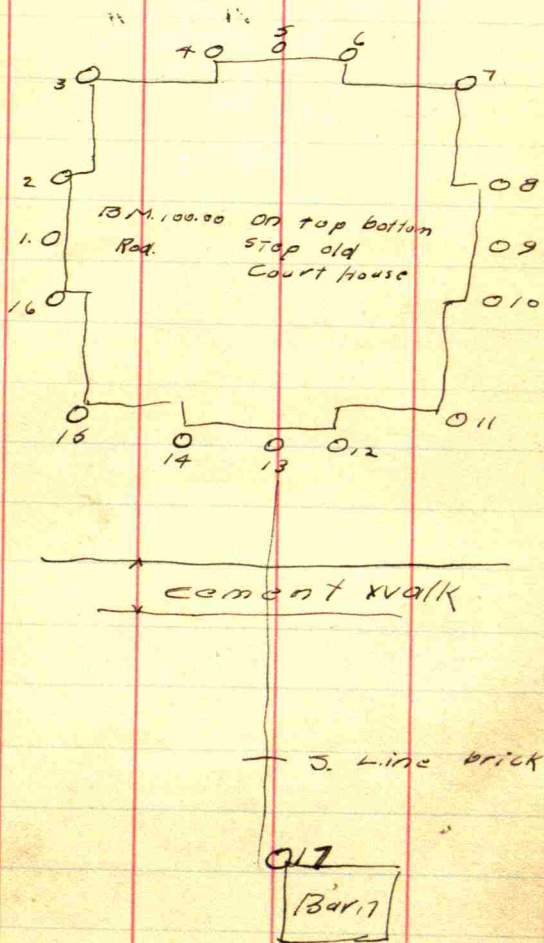 4 5 6
3 7
2 8
B.M. 100.00 on top bottom
1. 9
Rod. Step old
Court House
16 10
16 11
14 13 12
cement walk
S. Line brick
17
Barn